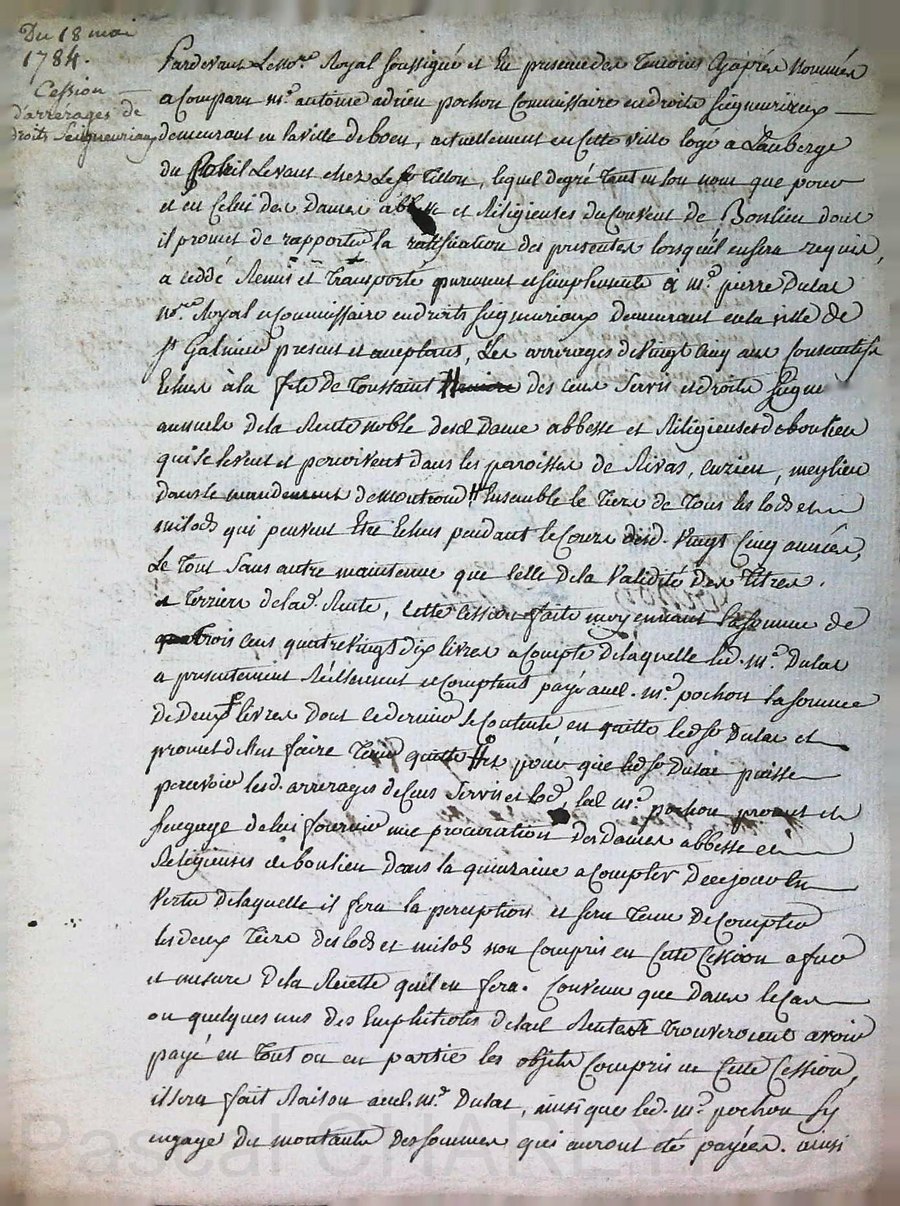 Du 18 mai
1784.
Cession
d'arrérages de
droits Seigneuriaux
Pardevant Le no.re Royal soussigné et En presence des Temoins Cyaprès nommés
a Comparu m.e antoine adrien pochon Commissaire en droits seigneuriaux
demeurant en la ville de boen, actuellement en Cette ville logé a Lauberge
du Soleil Levant chez Le Sr Tillon, lequel degré tant en son nom que pour
et en Celui des Dames abbesse et Religieuses du Couvent de Bonlieu dont
il promet de rapporter la ratification des presentes lorsquil en sera requis,
a Ceddé Remis et Transporté purement et simplement à m.e pierre Dulac
no.re Royal et Commissaire en droits seigneuriaux demeurant en la ville de
St Galmier present et acceptant, Les arrérages de vingt Cinq ans
Echus à la fete de Toussaint des Cens Servis et droits seigne
annuels de la Rente noble desd Dame abbesse et Religieuses de bonlieu
qui se levent et percoivent dans les paroisses de Rivas, Cuzieu, meylieu
dans le mandement de montrond Ensemble le Tiers de Tous les lods et
milods qui peuvent Etre Echus pendant le Cours desd. vingt Cinq années,
Le Tout Sans autre maintenue que Celle de la Validité des Titres
et Terriers de lad. Rente, Cette Cession faite moyennant la somme de
trois Cens quatre vingt dix livres a Compte de laquelle led. m.e Dulac
a presentement Réellement et Comptant payé aud. m.e pochon la somme
de Deux livres dont Ce dernier se Contente, en quitte led Sr Dulac et
promet de l'en faire Tenir quitte Et pour que led Sr Dulac puisse
percevoir lesd. arrerages de Cens Servis et lods, led m.e pochon promet et
sengage de lui fournir une procuration des Dames abbesse et
Religieuses de bonlieu Dans la quinzaine a Compter De ce jour En
Vertu de laquelle il fera la perception et sera Tenu De Compter
les deux Tiers des lods et milods non Compris en Cette Cession a fur
et mesure De la Recette quil en fera. Convenu que Dans le Cas
ou quelques uns des Emphiteotes de lad Rente se Trouveroient avoir
payé en Tout ou en partie les objets Compris en Cette Cession,
il sera fait Raison aud. m.e Dulac, ainsi que led. m.e pochon sy
engage du montant des sommes qui auront été payées. ainsi
Pascal CHAREYRON